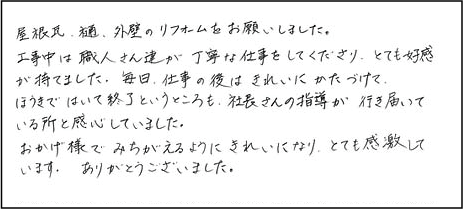 屋根瓦、樋、外壁のリフォームをお願いしました。
工事中は職人さん達が丁寧な仕事をしてくださり、とても好感
が持てました。毎日、仕事の後はきれいにかたづけて、
ほうきではいて終了というところも、社長さんの指導が行き届いて
いる所と感心していました。
おかげ様でみちがえるようにきれいになり、とても感激して
います。ありがとうございました。